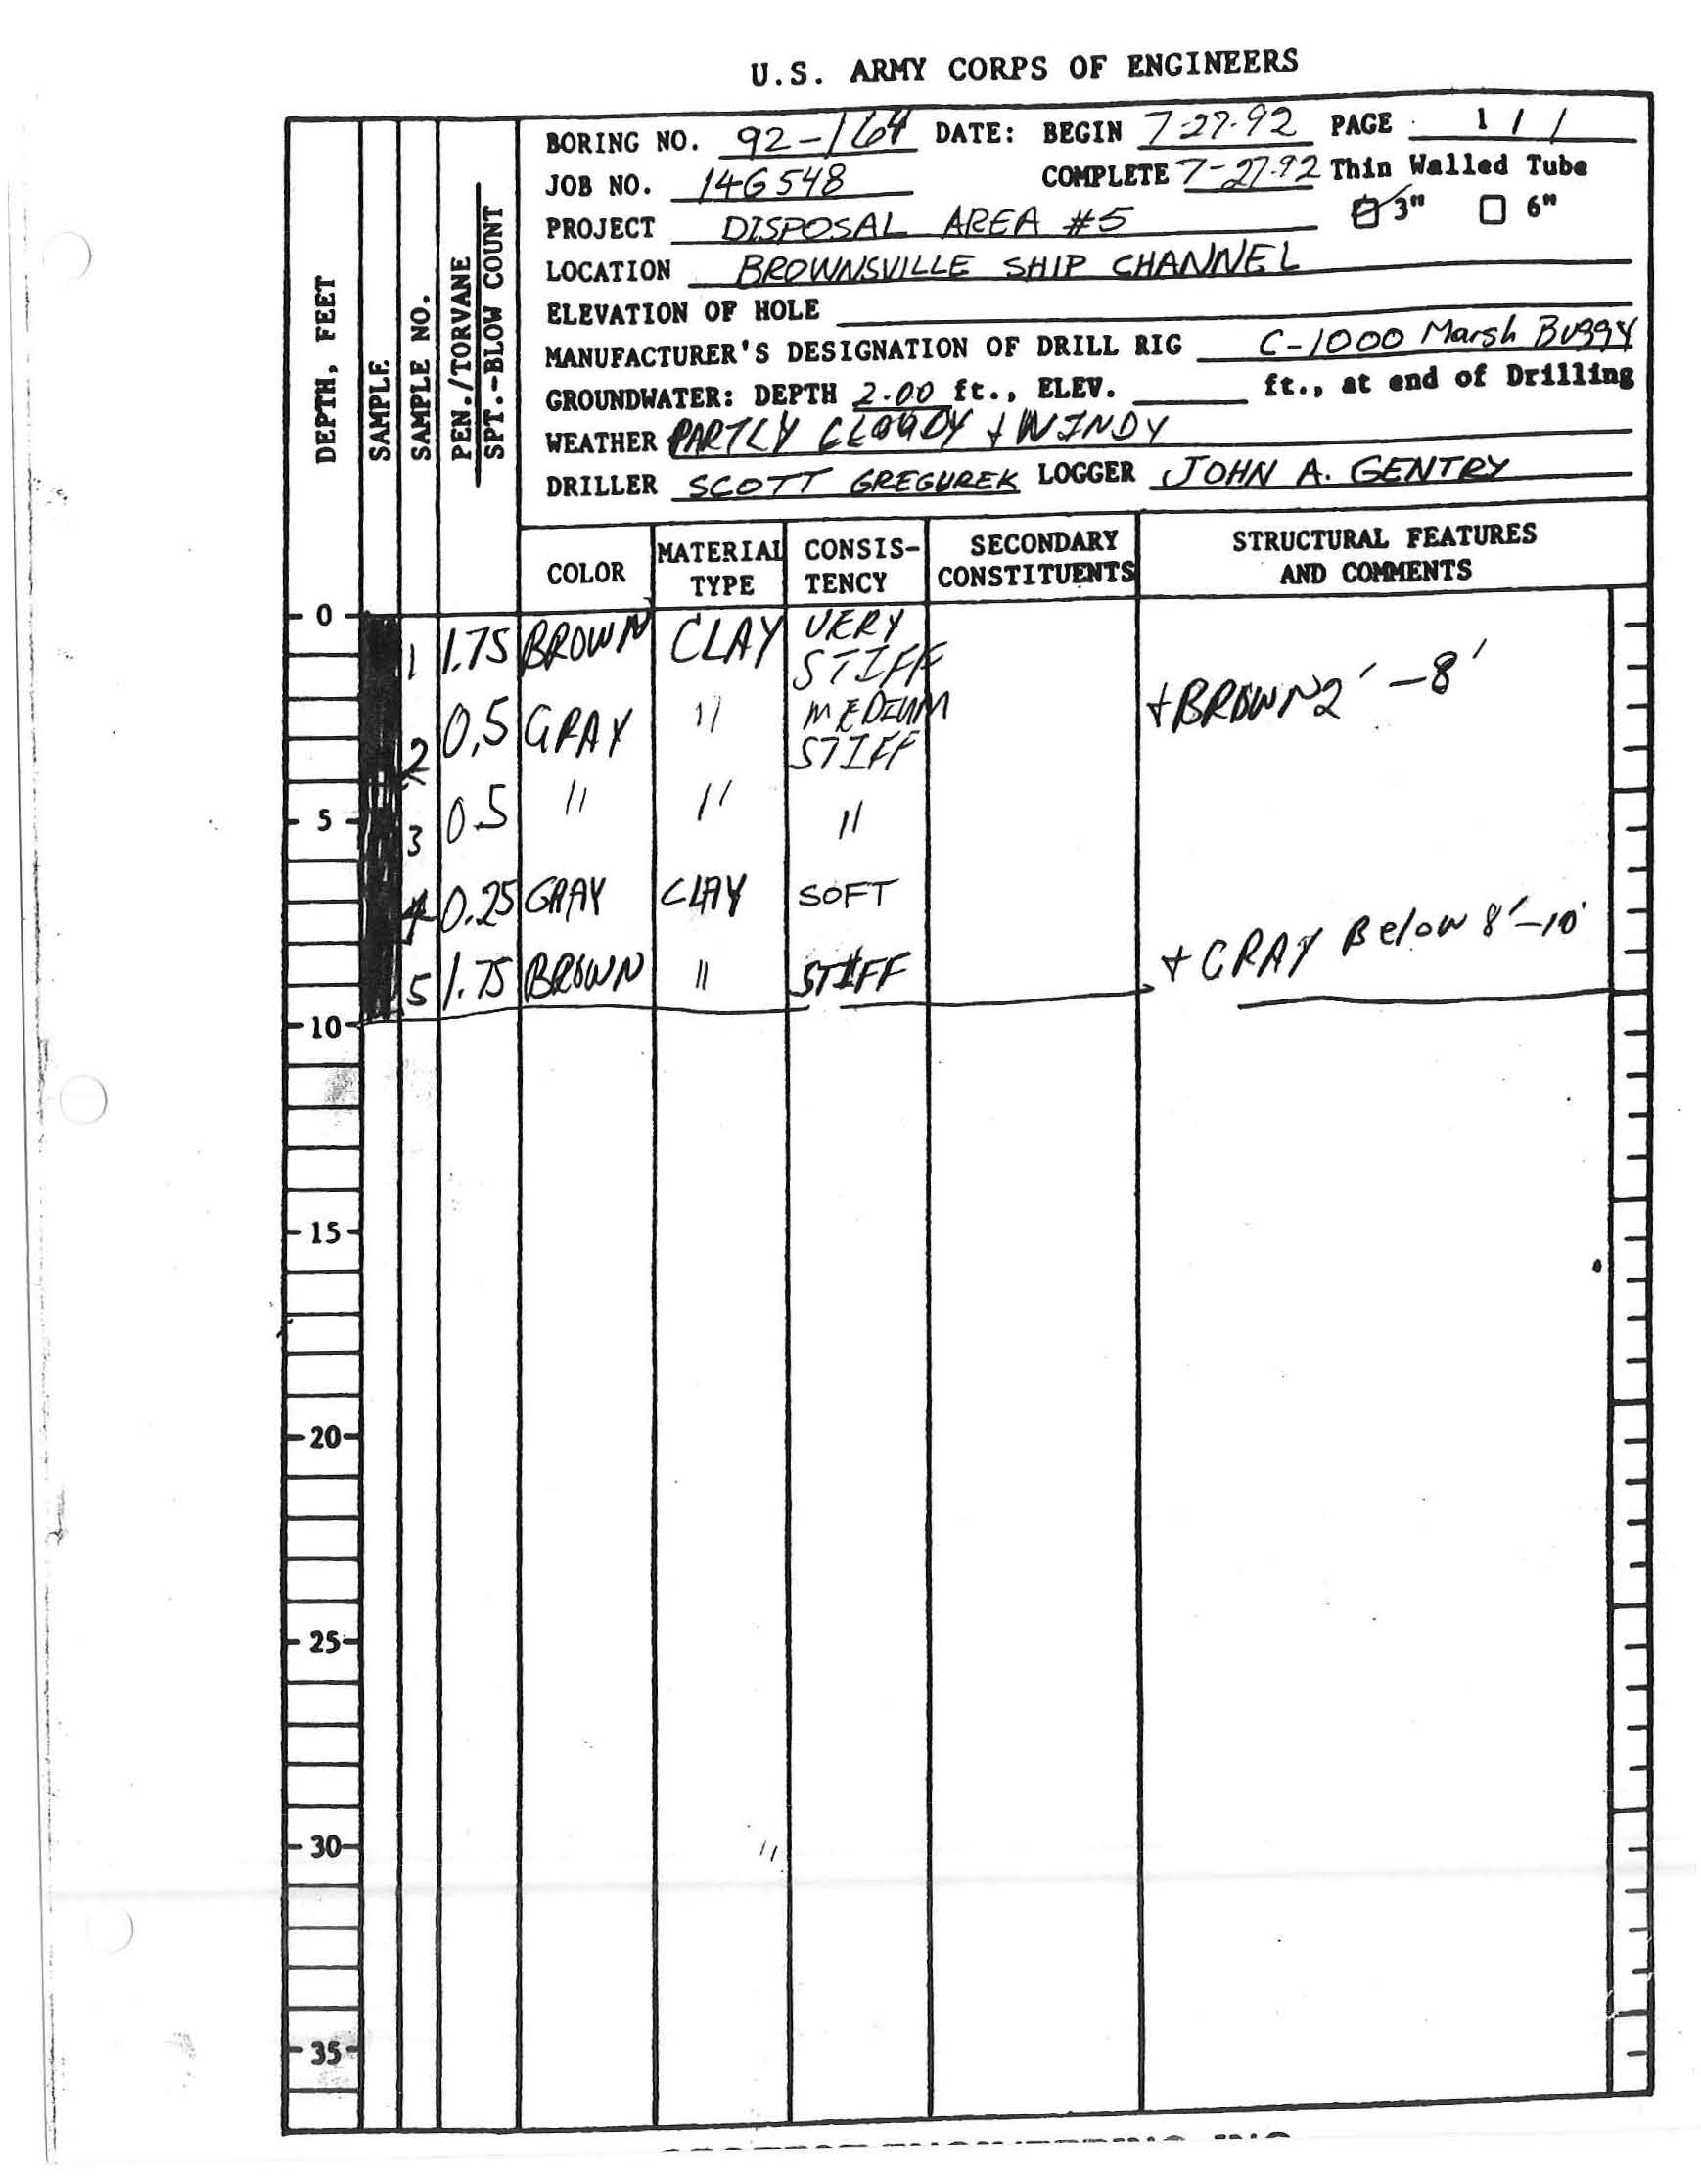 U.S. ARMY CORPS OF ENGINEERS
BORING NO. 92-164 DATE: BEGIN 7-27-92 PAGE 1 / 1
JOB NO. 14G548 COMPLETE 7-27-92 Thin Walled Tube
PROJECT DISPOSAL AREA #5 3" 6"
LOCATION BROWNSVILLE SHIP CHANNEL
ELEVATION OF HOLE
MANUFACTURER'S DESIGNATION OF DRILL RIG C-1000 Marsh Buggy
GROUNDWATER: DEPTH 2.00 ft., ELEV. ft., at end of Drilling
WEATHER PARTLY CLOUDY + WINDY
DRILLER SCOTT GREGUREK LOGGER JOHN A. GENTRY
DEPTH, FEET
SAMPLE
SAMPLE NO.
PEN./TORVANE
SPT.-BLOW COUNT
COLOR
MATERIAL
TYPE
CONSIS-
TENCY
SECONDARY
CONSTITUENTS
STRUCTURAL FEATURES
AND COMMENTS
0
1 1.75 BROWN CLAY VERY
STIFF
2 0.5 GRAY " MEDIUM
STIFF
+BROWN 2' -8'
5
3 0.5 " " "
4 0.25 GRAY CLAY SOFT
5 1.75 BROWN " STIFF
+ GRAY Below 8'-10'
10
15
20
25
30
"
35